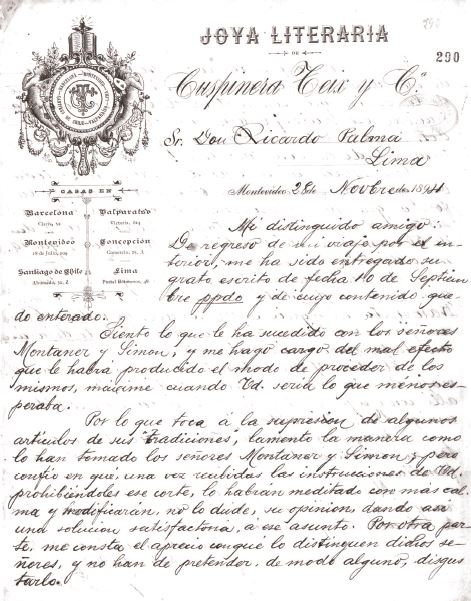 290
JOYA LITERARIA
DE
290
Cuspinera Teix y Cª
Sr. Don Ricardo Palma
Lima
Montevideo 28 de Novbre de 1894
CASAS EN
Barcelona
Valparaíso
Victoria,
Montevideo
18 de Julio,
Concepción
Comercio,
Santiago de Chile
Ahumada,
Lima
Portal Botoneros,
Mi distinguido amigo:
De regreso de mi viaje por el in
terior, me ha sido entregado su
grato escrito de fecha 10 de Septiem
bre ppdo y de cuyo contenido que-
do enterado.
Siento lo que le ha sucedido con los señores
Montaner y Simon, y me hago cargo del mal efecto
que le habrá producido el modo de proceder de los
mismos, máxime cuando Vd. seria lo que menos es
peraba.
Por lo que toca á la supresion de algunos
artículos de sus "tradiciones", lamento la manera como
lo han tomado los señores Montaner y Simon; pero
confío en que, una vez recibidas las instrucciones de Vd.
prohibiéndoles ese corte, lo habran meditado con mas cal
ma y modificarán, no lo dude, su opinion, dando asi
una solucion satisfactoria, á ese asunto. Por otra par
te, me consta el aprecio con que lo distinguen dichos se
ñores, y no han de pretender, de modo alguno, disgus
tarlo.